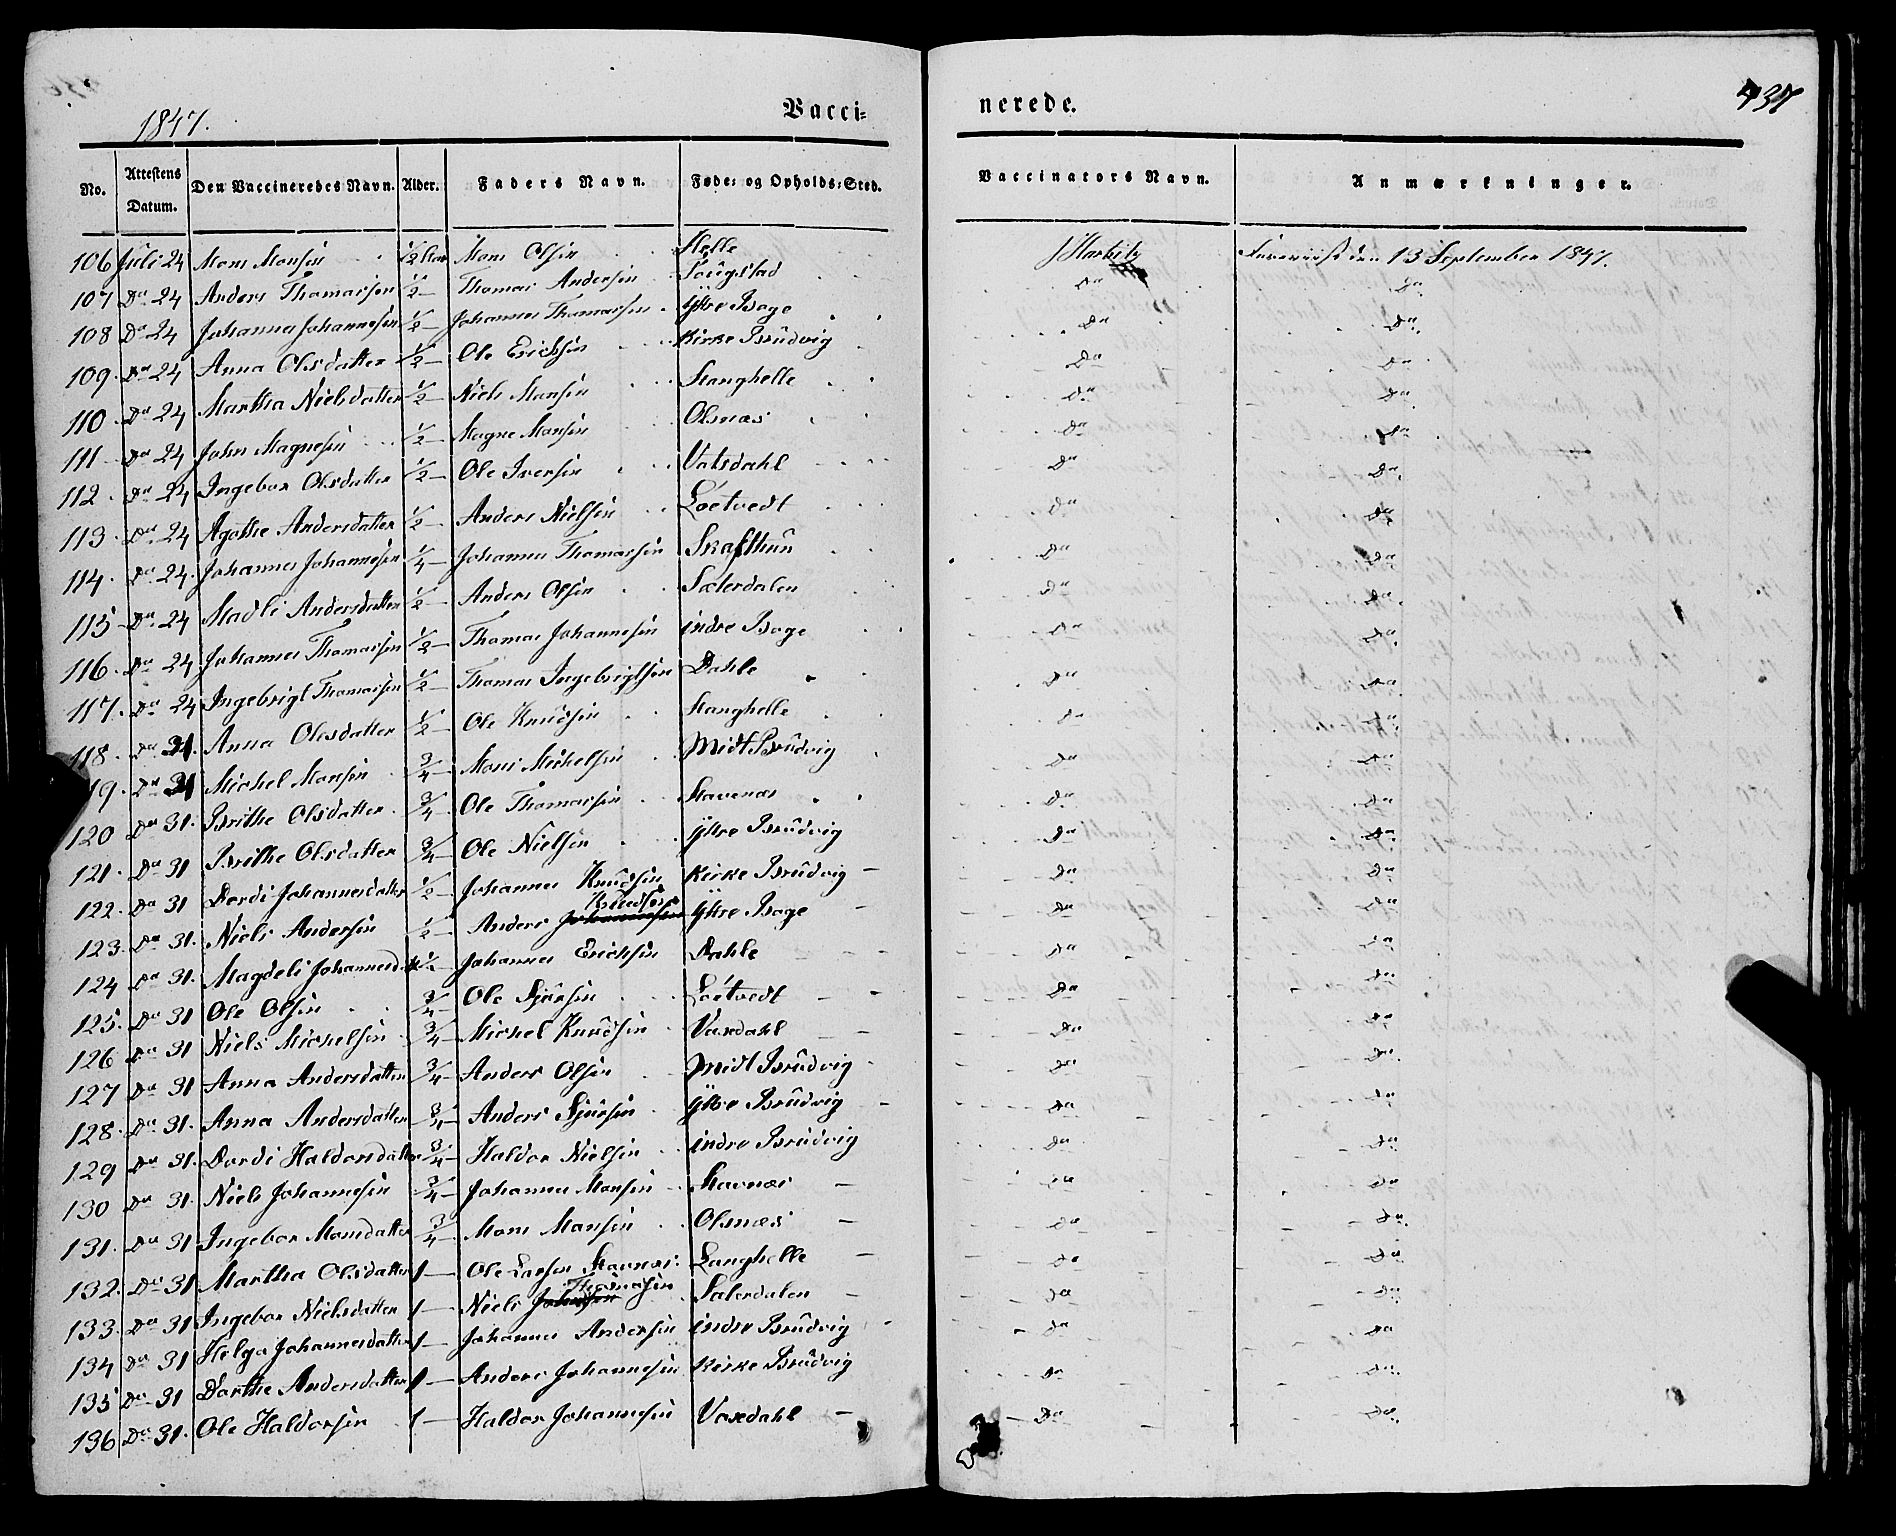 1847.
Vacci= nerede. 437
No. Attestens Datum. Den Vaccineredes Navn. Alder. Faders Navn. Føde= og Opholds=Sted. Vaccinators Navn. Anmærkninger.
106 Juli 24 Mons Monsen 1/2 Mons Olsen Helle den 13 September 1847.
107 Do 24 Anders Thomassen 1/2 — Thomas Andersen Do Do
108 Do 24 Johannes Johannesen 1/2 — Johannes Thomassen Yttre Boge Do Do
109. Do 24 Anna Olsdatter 1/2 — Ole Ericksen Kirke Brudvig Do Do
110 Do 24 Martha Nielsdatter 1/2 Niels Monsen Stanghelle Do Do
111 Do 24 John Magnesen 1/2 — Magne Monsen Olsnæs Do Do
112 Do 24 Ingebor Olsdatter 1/2 — Ole Iversen Vatsdahl Do Do
113. Do 24 Agathe Andersdatter 1/2 — Anders Nielsen Loetvedt Do Do
114. Do 24. Johannes Johannesen 1/4 — Johannes Thomassen Skafthun Do Do
115 Do 24 Madli Andersdatter 1/2 — Anders Olsen Sæterdalen Do Do
116 Do 24 Johannes Thomassen 1/2 — Thomas Johannesen indre Boge Do Do
117. Do 24 Ingebrigt Thomassen 1/2 — Thomas Ingebrigtsen Dahle Do Do
118. Do 31. Anna Olesdatter 1/2 — Ole Knudsen Stanghelle Do Do
119. Do 31 Michel Monsen 3/4 — Mons Michelsen Midt Brudvig Do Do
120 Do 31. Brithe Olsdatter 3/4 — Ole Thomassen Stavenæs Do Do
121. Do 31 Brithe Olsdatter 3/4 — Ole Nielsen Yttre Brudvig Do Do
122. Do 31 Dordi Johannesdatter 1/2 — Johannes Knudsen Kirke Brudvig — Do Do
123. Do 31. Niels Andersen 1/2 — Anders Johannesen Knudsen Yttre Boge — Do Do
124 Do 31. Magdeli Johannesd 1/2 — Johannes Ericksen Dahle Do Do
125. Do 31 Ole Olsen 3/4 — Ole Sjursen Loetvedt — Do Do
126 Do 31 Niels Michelsen 3/4 — Michel Knudsen Vaxdahl — Do Do
127 Do 31 Anna Andersdatter 3/4 — Anders Olsen Midt Brudvig Do Do
128. Do 31. Anna Andersdatter 3/4 — Anders Sjursen Yttre Brudvig — Do Do
129 Do 31. Dordi Haldorsdatter 3/4 — Haldor Nielsen indre Brudvig Do Do
130 Do 31. Niels Johannesen 3/4 — Johannes Monsen Stavnæs — Do Do
131. Do 31 Ingebor Monsdatter 3/4 — Mons Monsen Olsnæs — Do Do
132. Do 31 Martha Olsdatter 1 — Ole Larsen Stavnæs Langhelle — Do Do
133. Do 31 Ingebor Nielsdatter 1 — Niels Johansen Thomassen Saterdalen — Do Do
134 Do 31 Helga Johannesdatter 1 — Johannes Andersen indre Brudvig Do Do
135 Do 31 Dorthe Andersdatter 1 — Anders Johannesen Kirke Brudvig Do Do
136 Do 31. Ole Haldorsen 1 — Haldor Johannesen Vaxedahl — Do Do